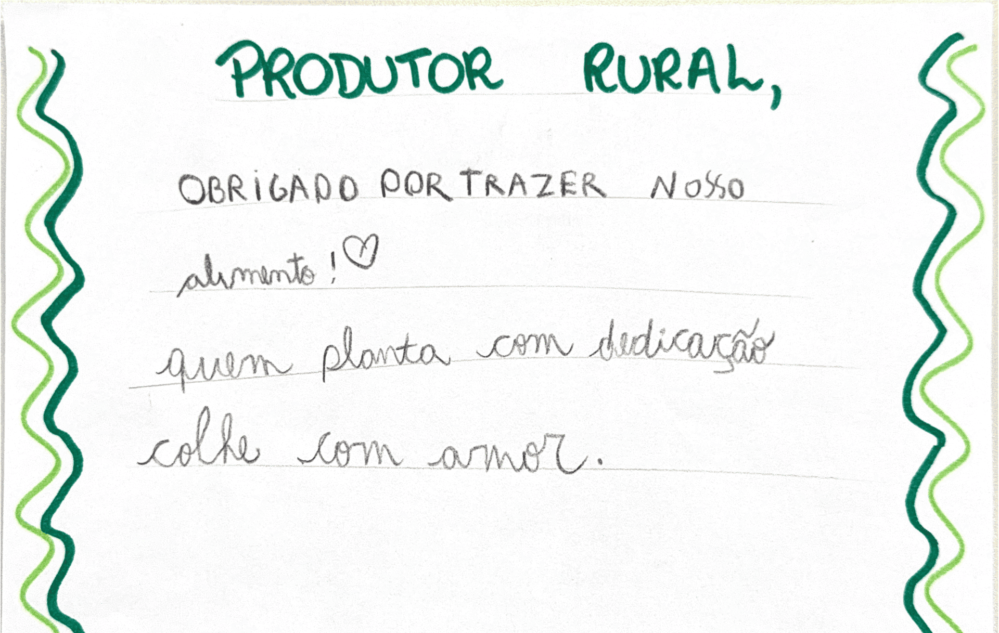 PRODUTOR RURAL,
OBRIGADO POR TRAZER NOSSO
alimento! ♡
quem planta com dedicação
colhe com amor.